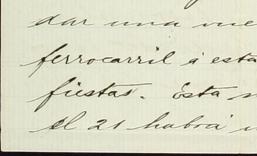 dar una me
ferrocarril á esta
fiestas. Esta
el 21 habrá